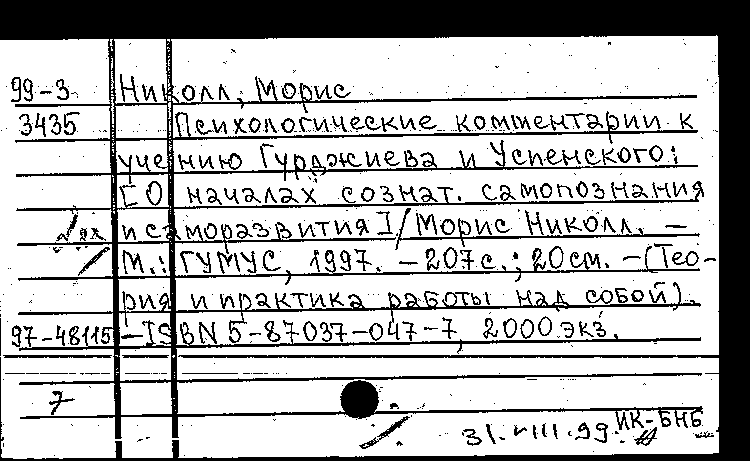 99-3 Николл, Морис
3435 Психологические комментарии к
учению Гурджиева и Успенского:
[О началах сознат. самопознания
и саморазвития]/Морис Николл. —
М.: ГУМУС, 1997. — 207с.; 20см. — (Тео-
рия и практика работы над собой).
97-48115 — ISBN 5-87037-047-7, 2000 экз.
7
31.VIII.99. ИК-БНБ